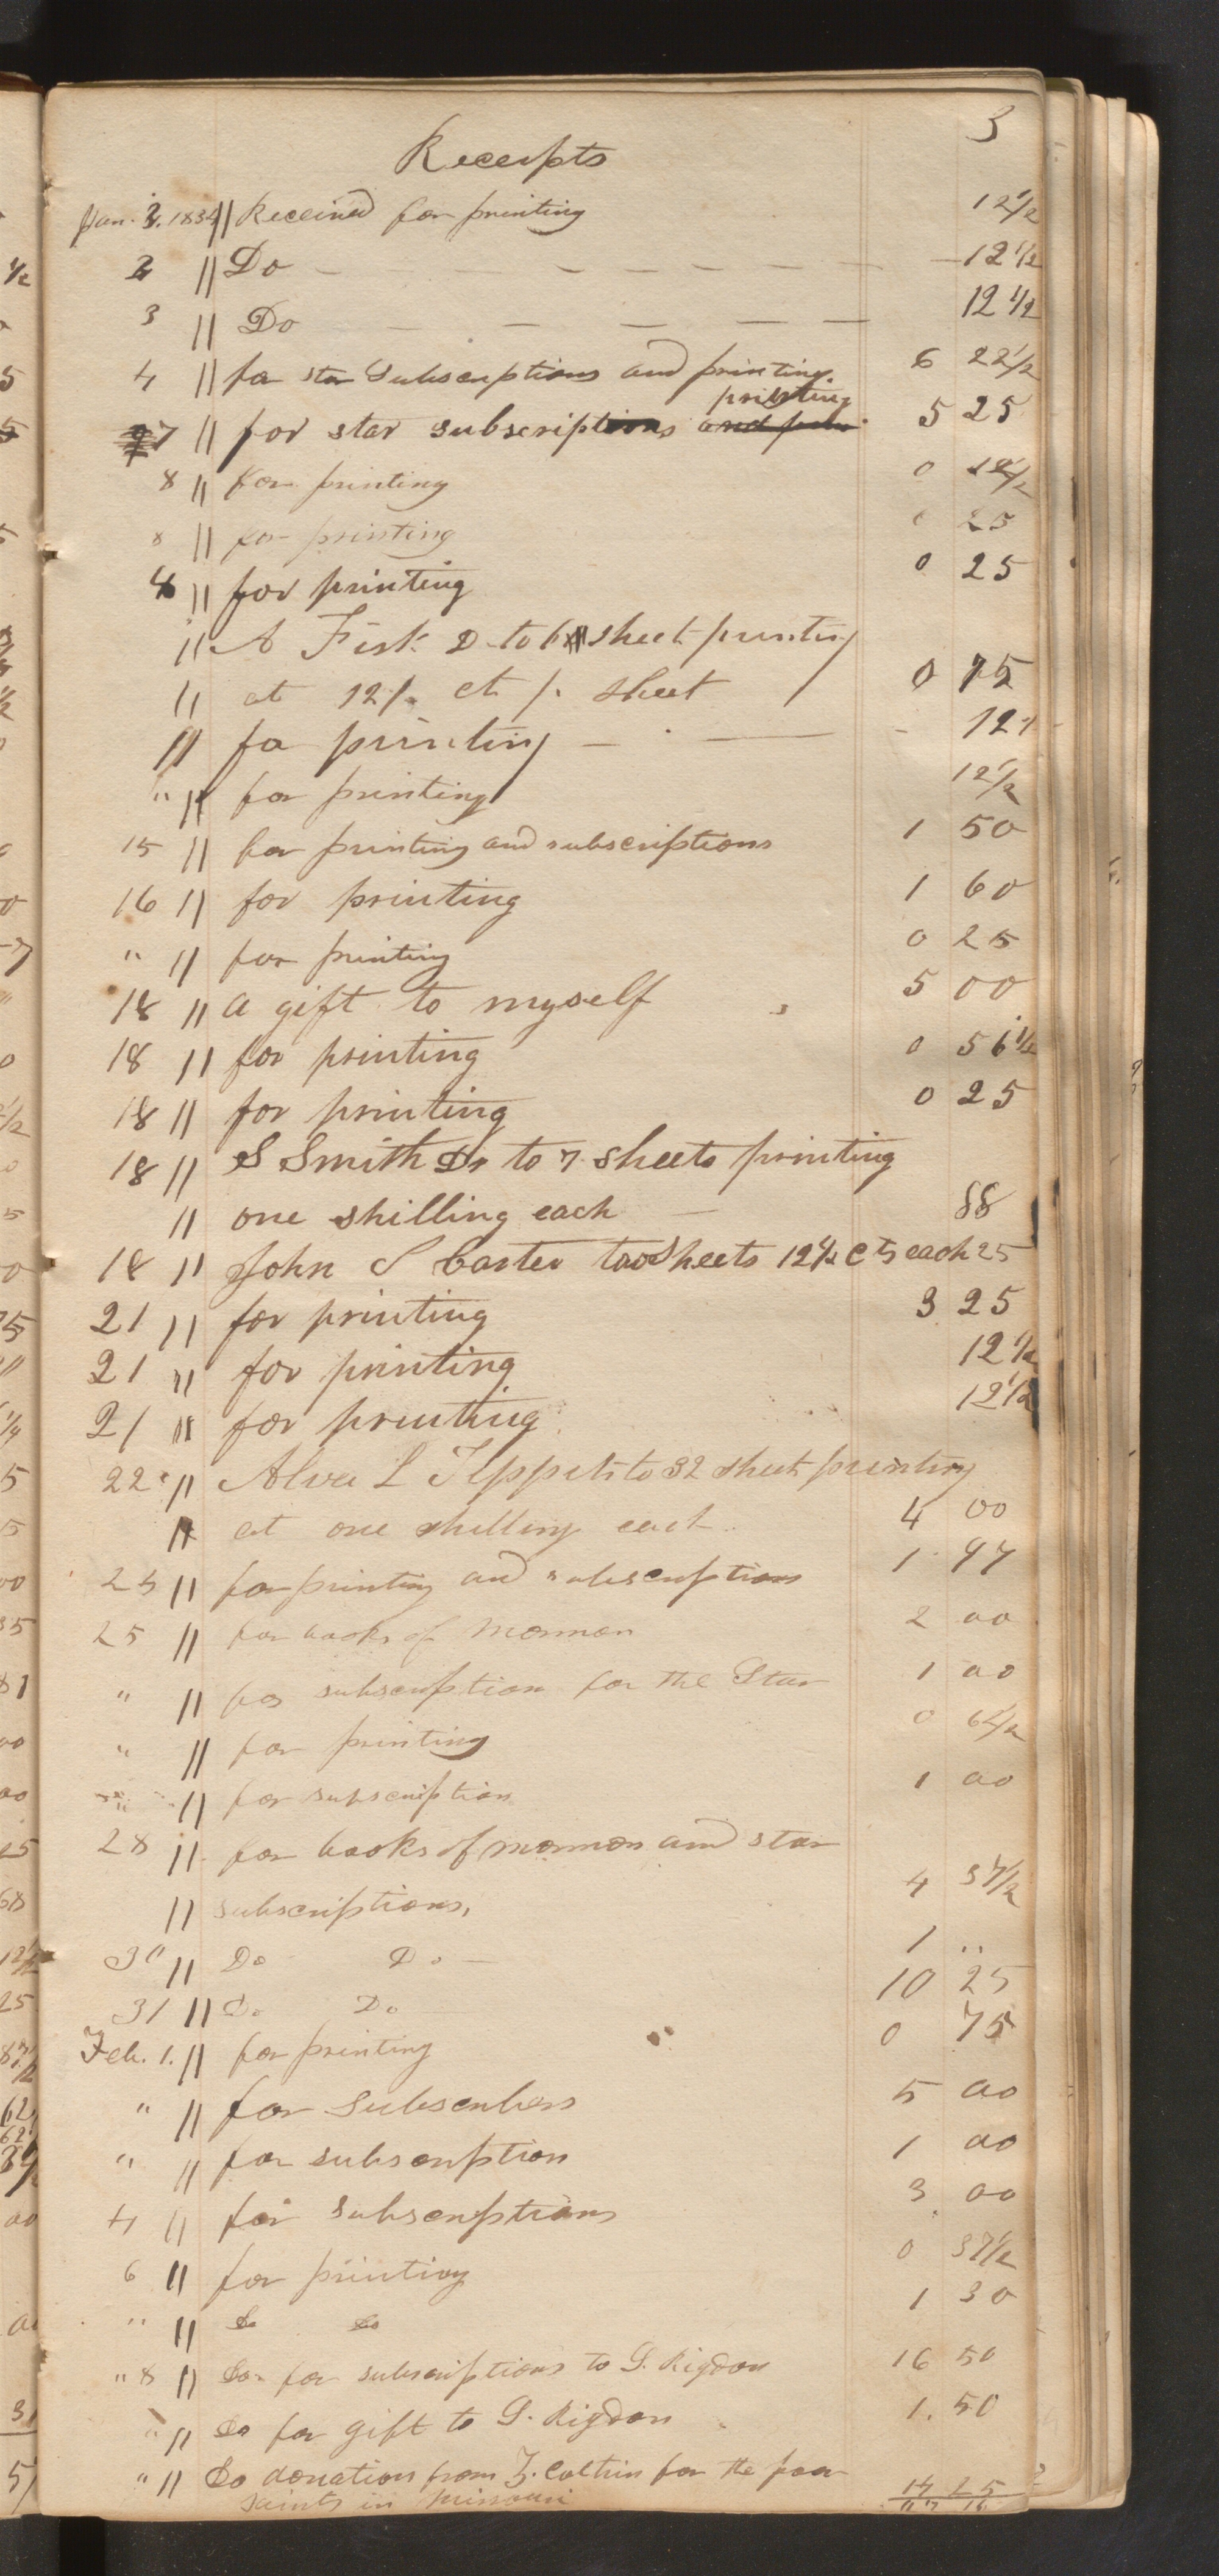 3
Receipts
Jan. 2. 1834 || Received for printing 12 1/2
2 || Do — — — — — — 12 1/2
3 || Do — — — — — 12 1/2
4 || for star Subscriptions and printing 6 22 1/2
printing
7 || for star subscriptions and prin 5 25
8 || for printing 0 12 1/2
8 || for printing 25
|| for printing 0 25
|| A Fisk D to 6 sheet printing
|| at 12 1/2 ct p. sheet 0 75
|| for printing — 12 1/2
" || for printing 12 1/2
15 || for printing and subscriptions 1 50
16 || for printing 1 60
" || for printing 0 25
18 || a gift to myself 5 00
18 || for printing 0 56 1/2
18 || for printing 0 25
18 || S Smith Dr to 7 sheets printing
|| one shilling each — 88
18 || John S Carter two sheets 12 1/2 cts each 25
21 || for printing 3 25
21 || for printing 12 1/2
21 || for printing 12 1/2
22 || Alva L Tippets to 32 sheets printing
|| at one shilling each 4 00
|| for printing and subscriptions 1 97
25 || for books of Mormon 2 00
" || for subscription for the Star 1 00
" || for printing 0 62 1/2
|| for subscription 1 00
28 || for books of mormon and star
|| subscriptions, 4 37 1/2
30 || Do Do — 1 ..
31 || Do Do 10 25
Feb. 1. || for printing 0 75
" || for Subscribers 5 00
" || for subscription 1 00
4 || for subscriptions 3 00
6 || for printing 0 37 1/2
" || Do Do 1 30
" 8 || Do. for subscriptions to S. Rigdon 16 50
" || Do for gift to S. Rigdon 1. 50
" || Do donation from Z. Coltrin for the poor
saints in Missouri 25